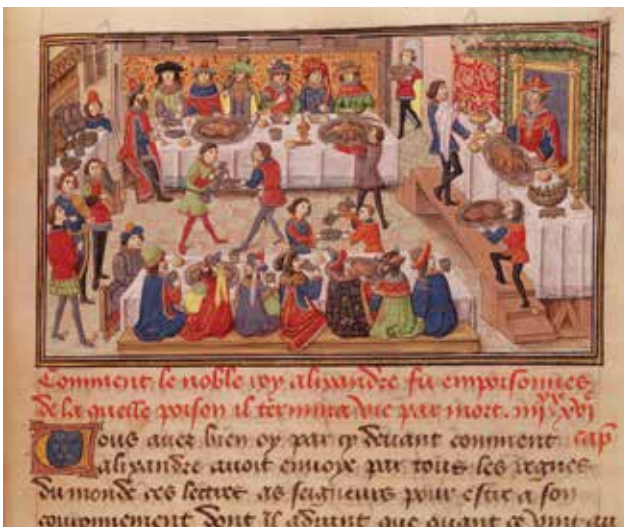 Comment le noble roy alixandre fu empoisonnes
de la quelle poison il termina vie par mort. iiijxx xvi
Vous avez bien oy par cy devant comment cap
alixandre avoit envoye par tous les regnes
du monde ces lettres as seigneurs pour estre a son
couronnement dont il advint que quant ce vint au